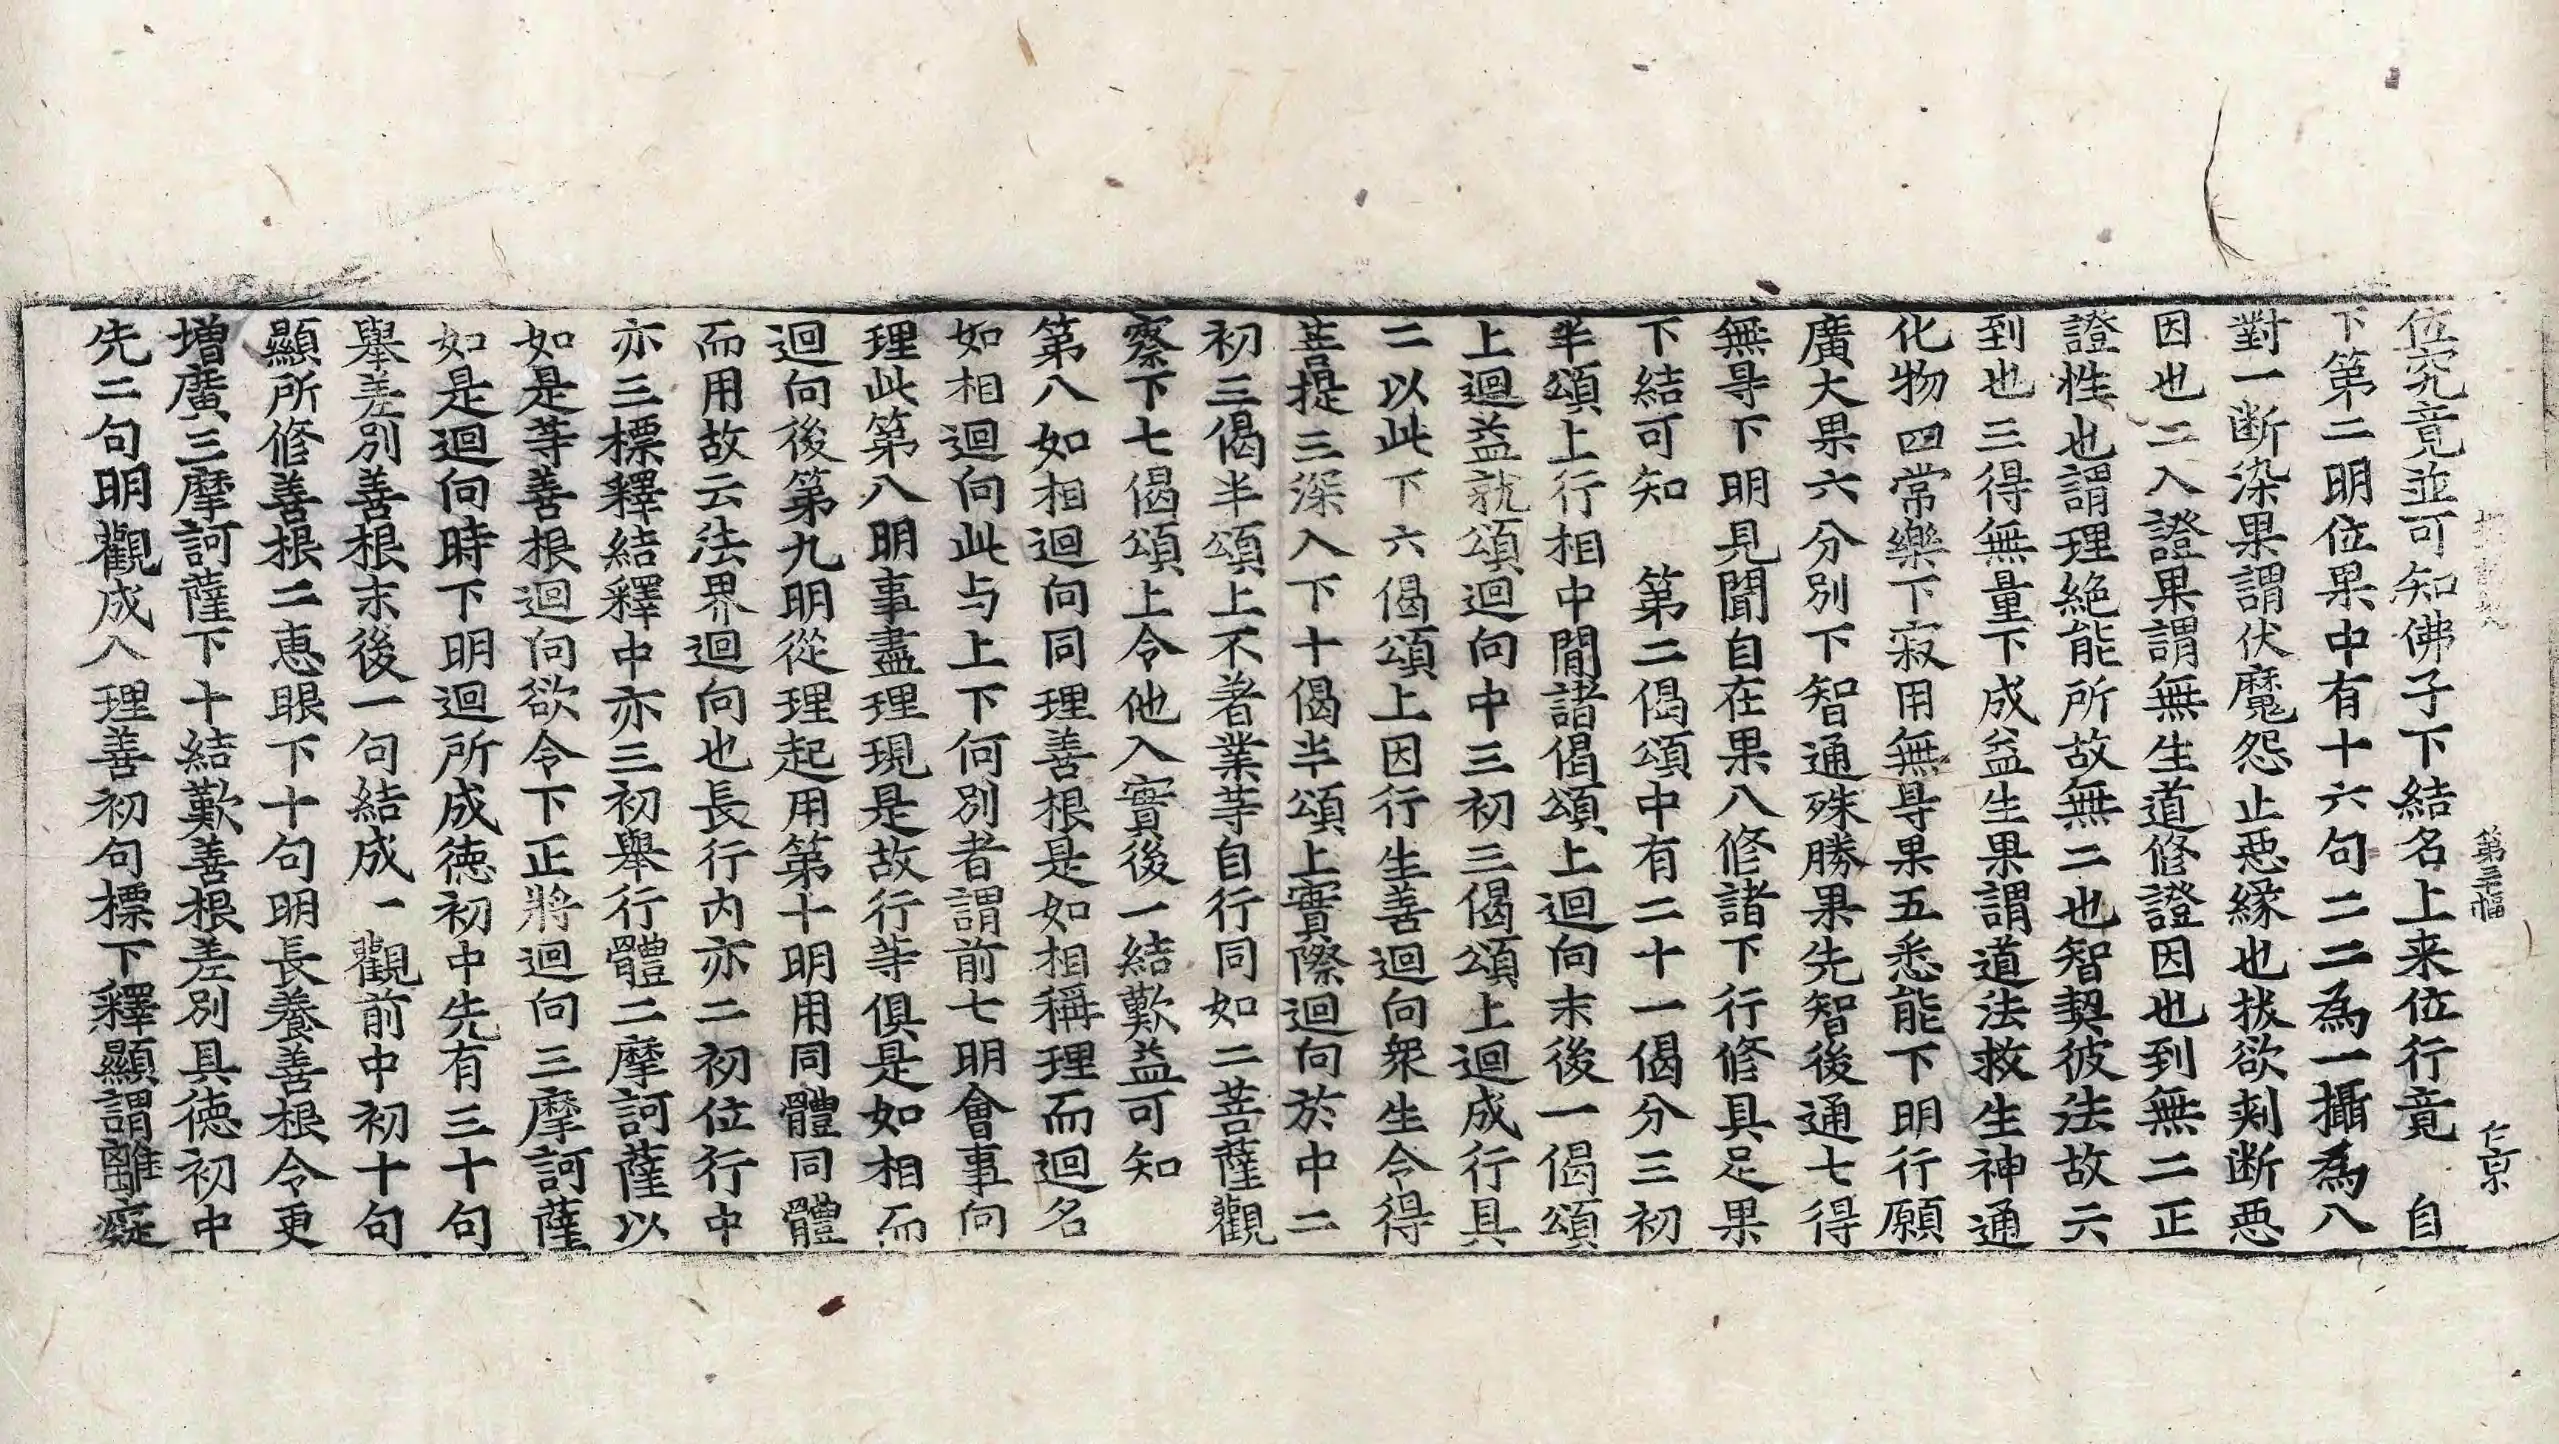 第三幅
仁京
位究竟並可知佛子下結名上来位行竟　自
下第二明位果中有十六句二二為一攝為八
對一断染果謂伏魔怨止惡縁也拔欲刾断惡
因也二入證果謂無生道修證因也到無二正
證性也謂理絶能所故無二也智契彼法故六
到也三得無量下成益生果謂道法救生神通
化物四常樂下寂用無㝵果五悉能下明行願
廣大果六分別下智通殊勝果先智後通七得
無㝵下明見聞自在果八修諸下行修具足果
下結可知　第二偈頌中有二十一偈分三初
半頌上行相中間諸偈頌上迴向末後一偈頌
上迴益就頌迴向中三初三偈頌上迴成行具
二以此下六偈頌上因行生善迴向衆生令得
菩提三深入下十偈半頌上實際迴向於中二
初三偈半頌上不著業等自行同如二菩薩觀
察下七偈頌上令他入實後一結歎益可知
第八如相迴向同理善根是如相稱理而迴名
如相迴向此与上下何別者謂前七明會事向
理此第八明事盡理現是故行等俱是如相而
迴向後第九明從理起用第十明用同體同體
而用故云法界迴向也長行内亦二初位行中
亦三標釋結釋中亦三初舉行體二摩訶薩以
如是等善根迴向欲令下正將迴向三摩訶薩
如是迴向時下明迴所成徳初中先有三十句
舉差別善根末後一句結成一觀前中初十句
顯所修善根二惠眼下十句明長養善根令更
増廣三摩訶薩下十結歎善根差別具徳初中
先二句明觀成入理善初句標下釋顯謂離癡